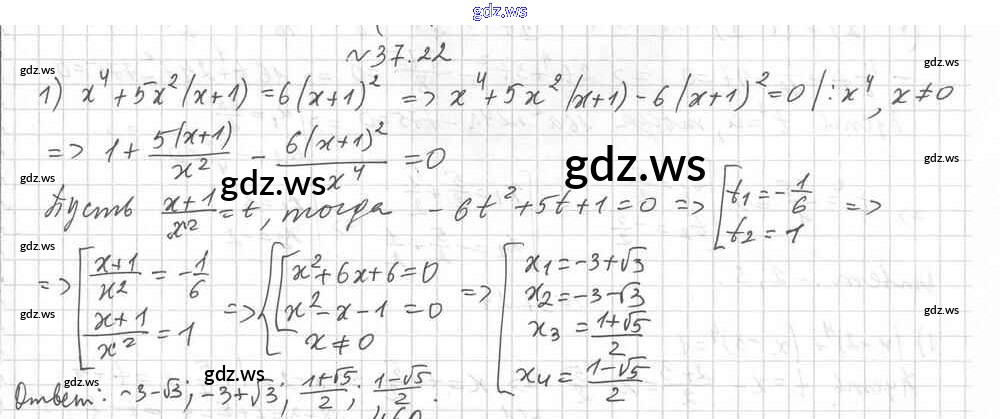 gdz.ws
~37.22
gdz.ws gdz.ws
1) x⁴ + 5x²(x+1) = 6(x+1)² => x⁴ + 5x²(x+1) - 6(x+1)² = 0 |:x⁴, x ≠ 0
=> 1 + 5(x+1)/x² - 6(x+1)²/x⁴ = 0
gdz.ws gdz.ws gdz.ws gdz.ws
Пусть (x+1)/x² = t, тогда -6t² + 5t + 1 = 0 => [t₁ = -1/6 t₂ = 1 =>
gdz.ws gdz.ws
=> [(x+1)/x² = -1/6 (x+1)/x² = 1 => {[x² + 6x + 6 = 0 x² - x - 1 = 0 x ≠ 0 => [x₁ = -3 + √3 x₂ = -3 - √3 x₃ = (1+√5)/2 x₄ = (1-√5)/2
gdz.ws gdz.ws
gdz.ws gdz.ws
Ответ: -3-√3; -3+√3; (1+√5)/2; (1-√5)/2.